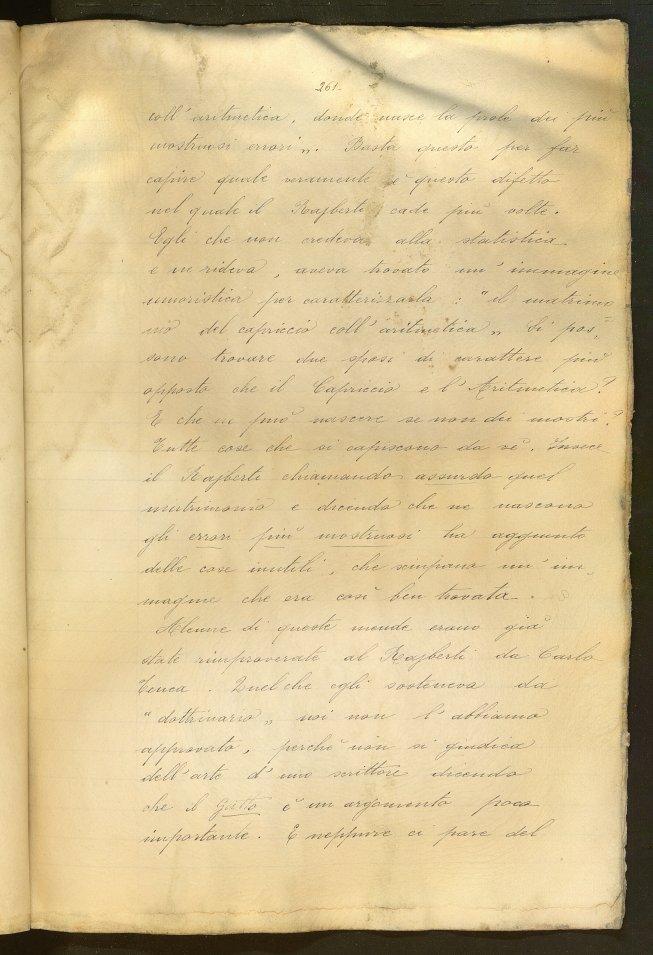 261.
coll' aritmetica, donde nasce la prole dei più
mostruosi errori„. Basta questo per far
capire quale veramente è questo difetto
nel quale il Rajberti cade più volte.
Egli che non credeva alla statistica
e ne rideva, aveva trovato un' immagine
umoristica per caratterizzarla : "il matrimo
nio del capriccio coll' aritmetica„ Si pos=
sono trovare due sposi di carattere più
opposto che il Capriccio e l' Aritmetica?
E che ne può nascere se non dei mostri?
Tutte cose che si capiscono da sè. Invece
il Rajberti chiamando assurdo quel
matrimonio e dicendo che ne nascono
gli errori più mostruosi ha aggiunto
delle cose inutili, che sciupano un' im=
magine che era così ben trovata.
Alcune di queste mende erano già
state rimproverate al Rajberti da Carlo
Tenca. Quel che egli sosteneva da
"dottrinario„ noi non l' abbiamo
approvato, perchè non si giudica
dell' arte d' uno scrittore dicendo
che il Gatto è un argomento poco
importante. E neppure ci pare del